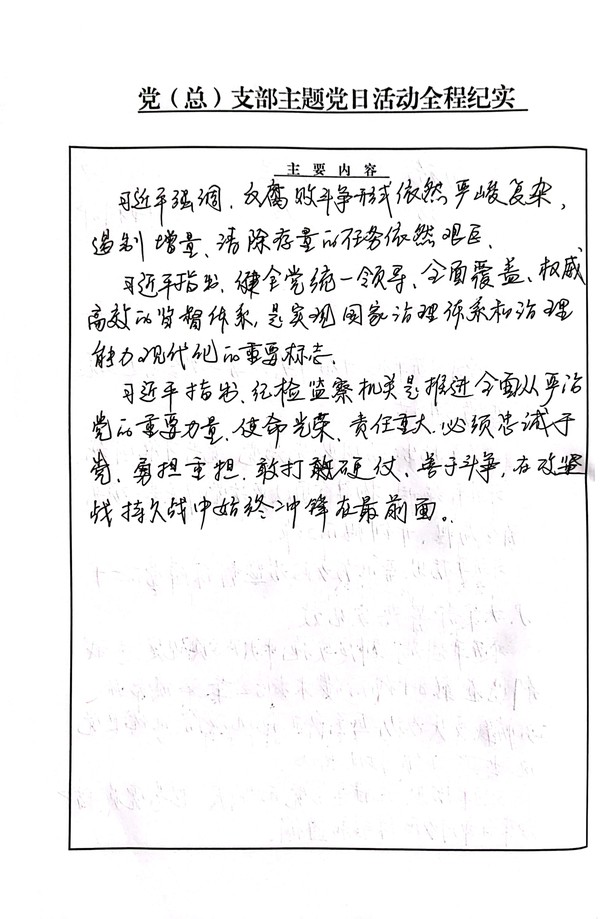 党（总）支部主题党日活动全程纪实
主要内容
习近平强调、反腐败斗争形式依然严峻复杂，
遏制增量、清除存量的任务依然艰巨、
习近平指出、健全党统一领导、全面覆盖、权威
高效的监督体系，是实现国家治理体系和治理
能力现代化的重要标志、
习近平指出、纪检监察机关是推进全面从严治
党的重要力量、使命光荣、责任重大、必须忠诚于
党、勇担重担、敢打硬仗、善于斗争，在攻坚
战持久战中始终冲锋在最前面。